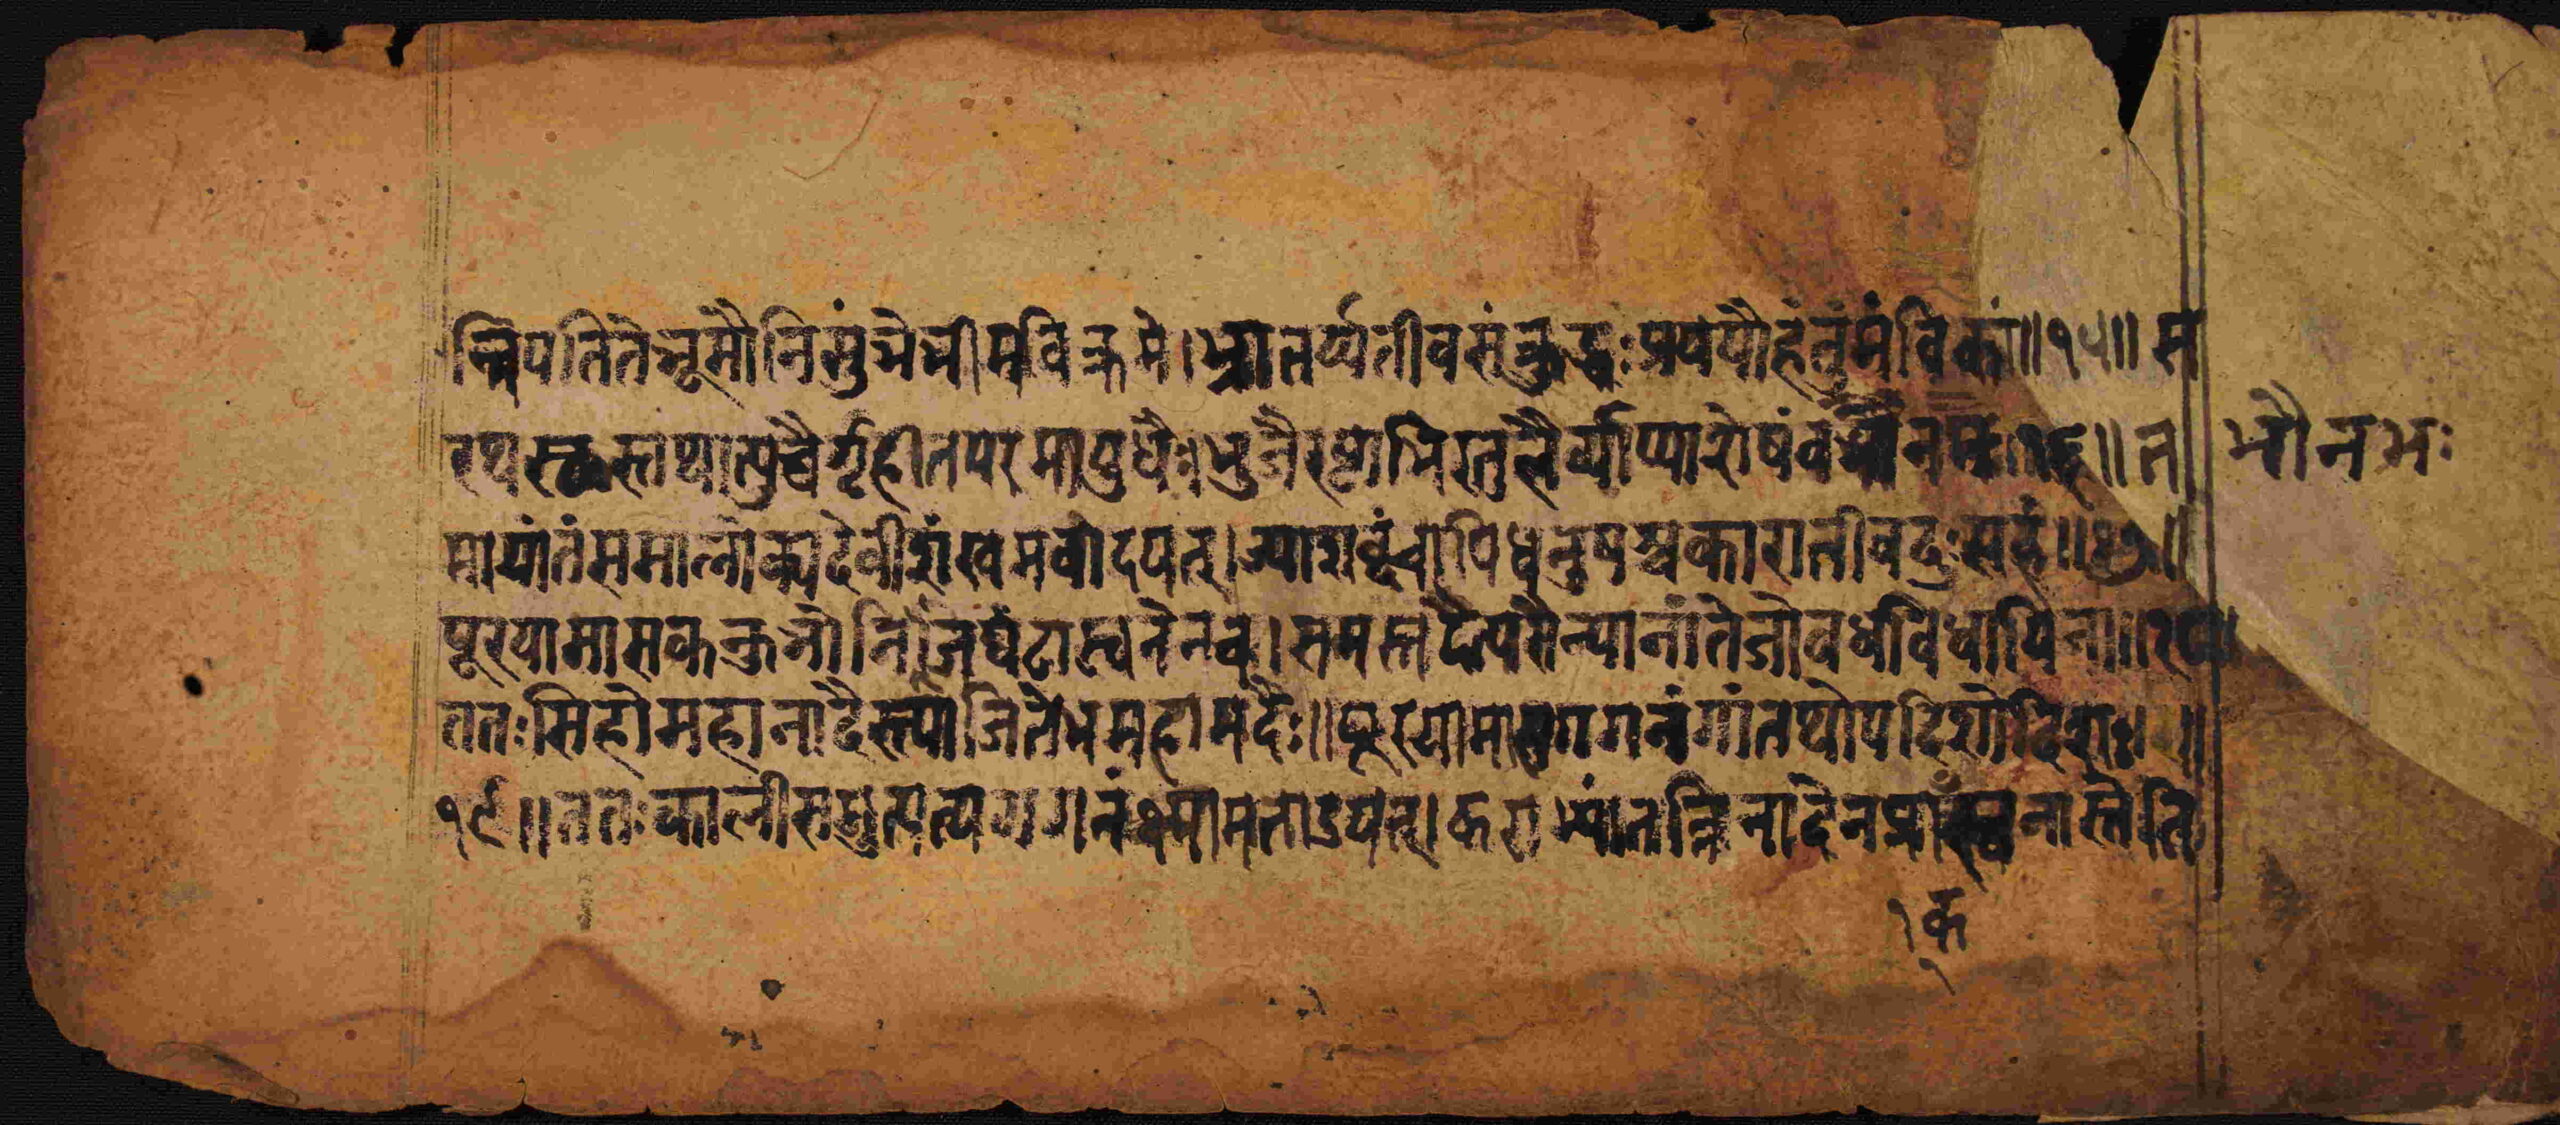 न्निपतितेभूमौनिसुंभेभीमविक्रमे।भ्रातर्य्यतीवसंक्रुद्धःप्रययौहंतुमंविकां॥१५॥स
रथस्थस्तथात्युच्चैर्गृहीतपरमायुधैः।भुजैरष्टाभिरतुलैर्व्याप्याशेषंवभौनभः॥१६॥त
भौनभः
मायांतंसमालोक्यदेवीशंखमवादयत्।ज्याशव्दंचापिधनुषश्चकारातीवदुःसहं॥१७॥
पूरयामासककुभोनिजघंटास्वनेनच।समस्तदैत्यसैन्यानांतेजोवधविधायिना॥१८॥
ततःसिहोमहानादैस्त्याजितेभमहामदैः॥पूरयामासगगनंगांतथोपदिशोदिशः॥
१९॥ततःकालीसमुत्पत्यगगनंक्ष्मामताडयत्।कराभ्यांतन्निनादेनप्राक्स्वनास्तेति
१क्